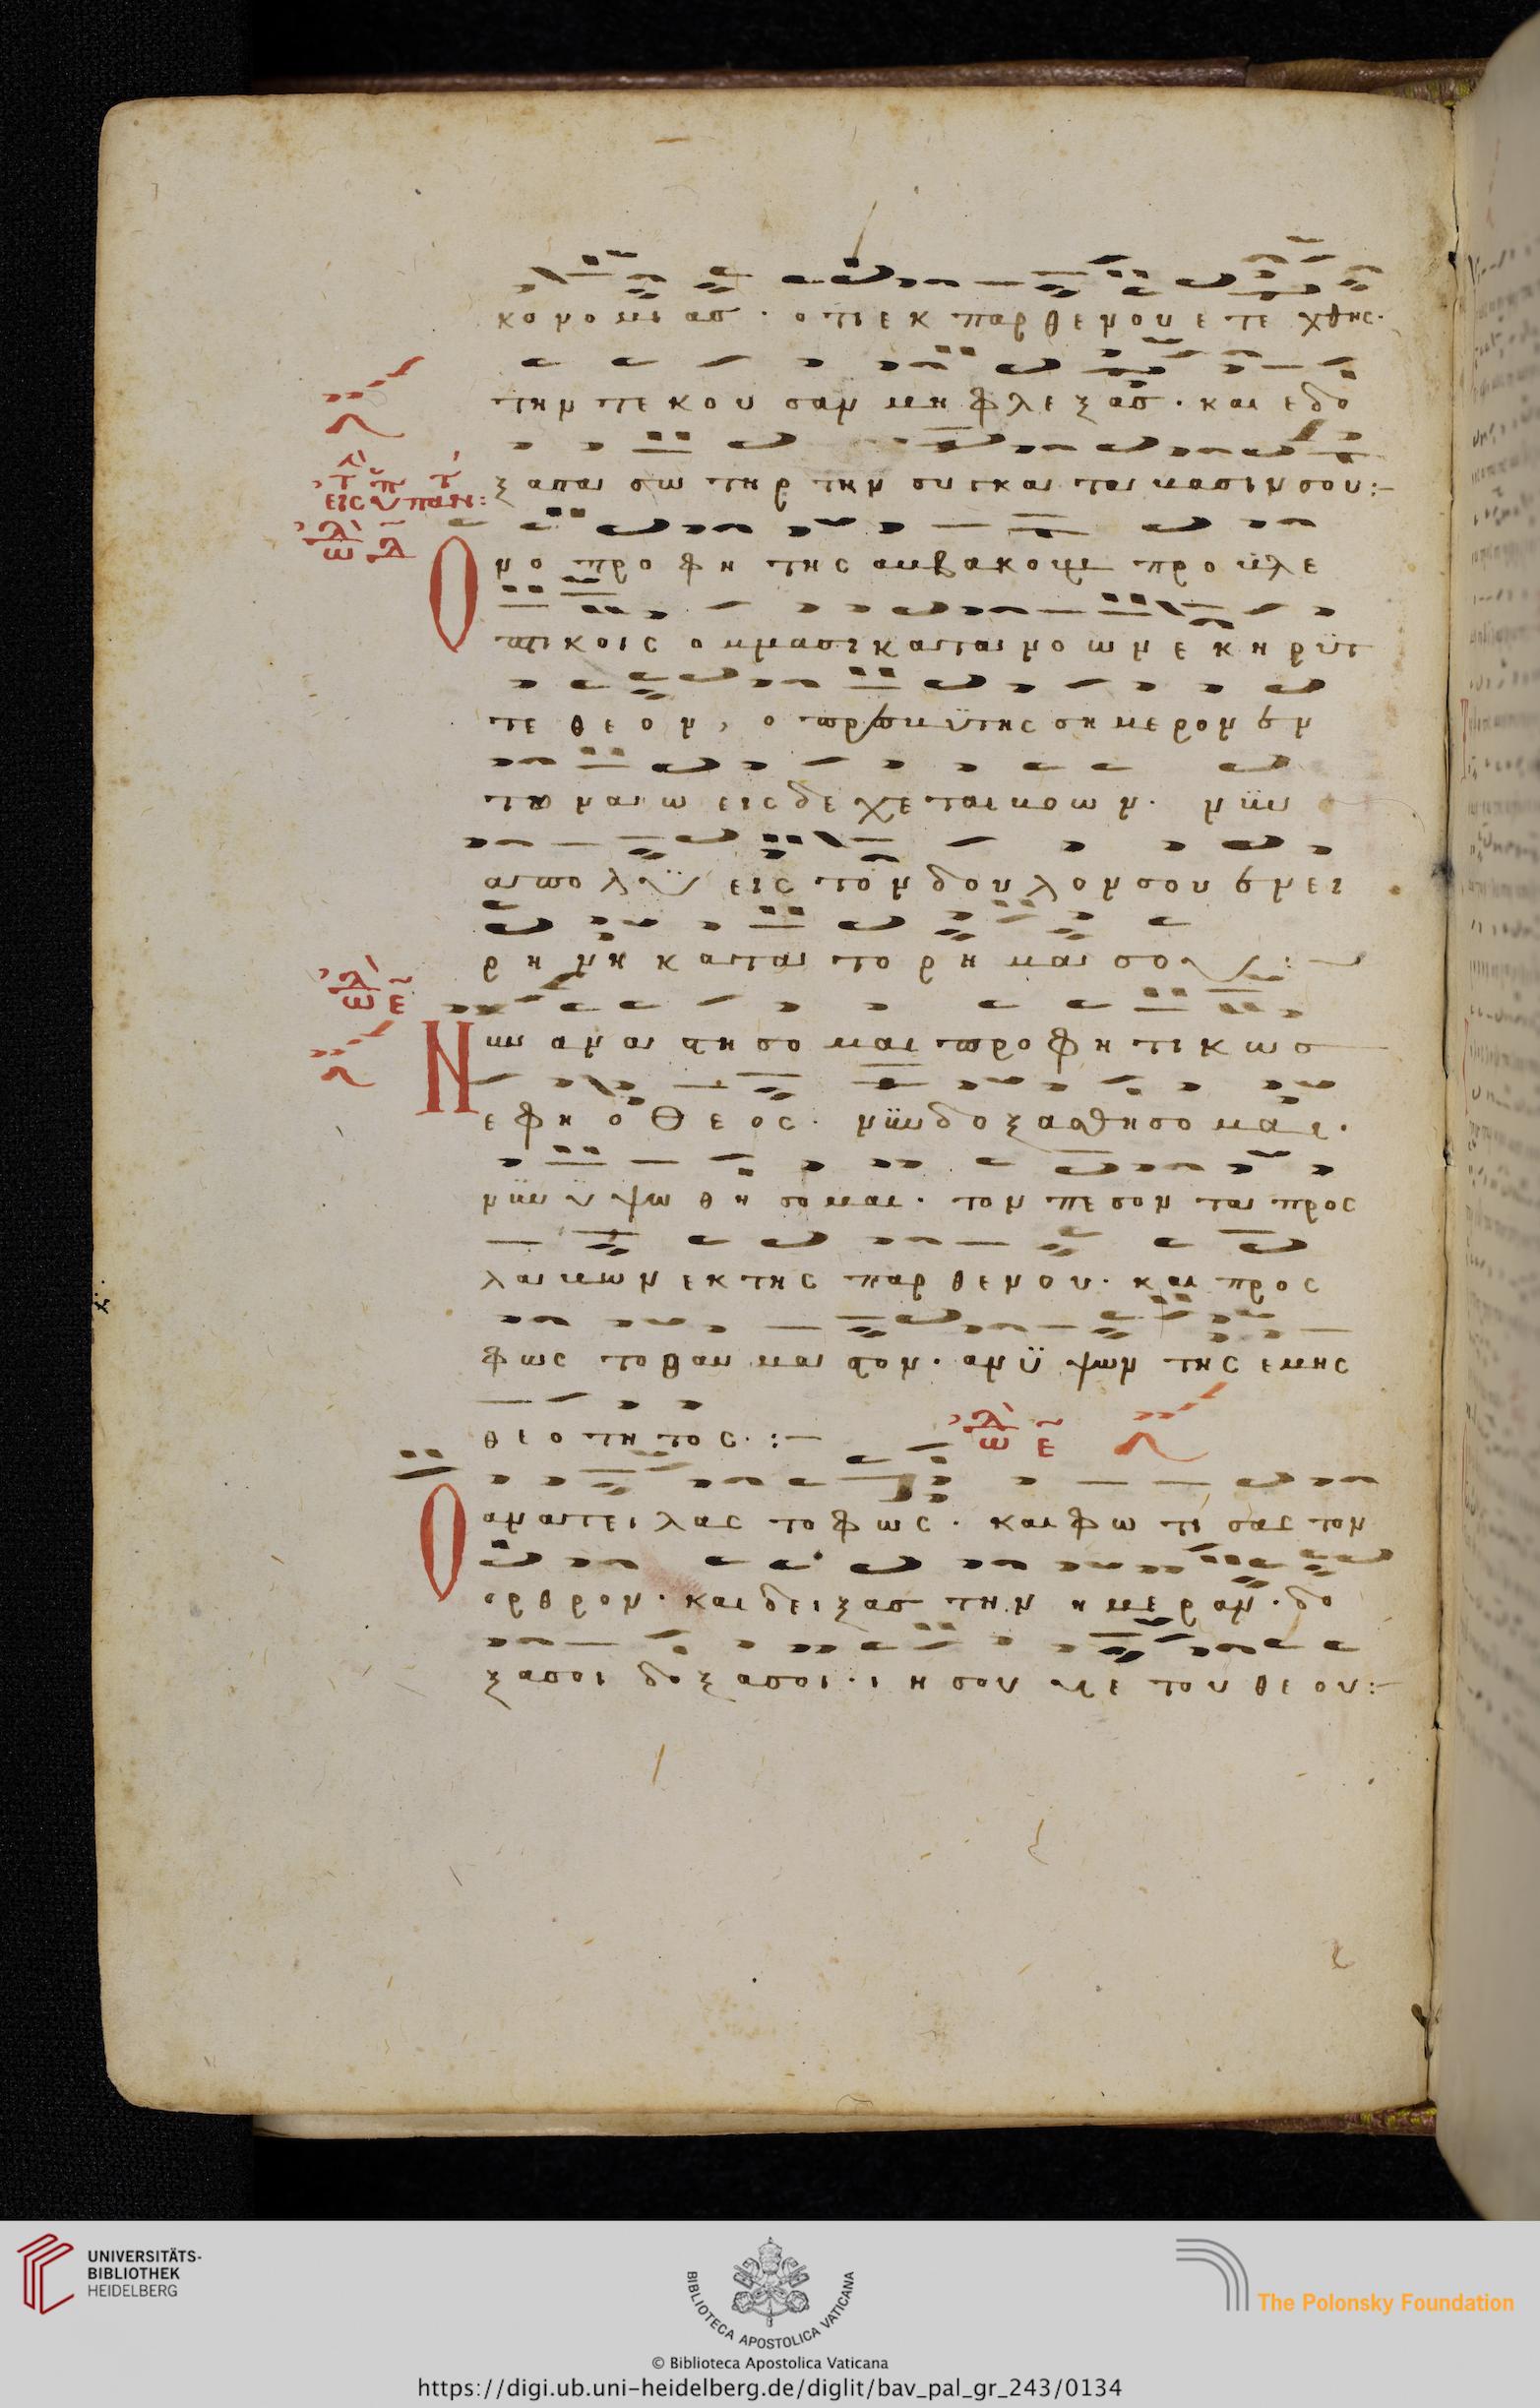 κονομιας · οτι εκ παρθενου ετεχθης ·
την τεκουσαν μη φλεξας · και εδο
ξασας ωτηρ την συγκατα
ο προφητης αμβακουμ προ
τικοις ομμασι κατανοων εκηρυτ
τε θεον, ο πρεσβυτης σημερον εν
ταις εισδεχεται βοων · νυν
απολυεις τον δουλον σου εν ει
ρηνη κατα το ρημα σου :
Νυν αναστησομαι προφητικως
εφη ο Θεος · νυν δοξασθησομαι ·
νυν υψωθησομαι · τον πεσοντα προσ
λαβων εκ της παρθενου · και προς
φως το θαυμαστον · ανυψων της εμης
θεοτητος · :
Ο αναστειλας το φως · και φωτισας τον
ορθρον · και δειξας την ημεραν · δο
ξα σοι δοξα σοι · ιησου υιε του θεου :
UNIVERSITÄTS-
BIBLIOTHEK
HEIDELBERG
BIBLIOTECA APOSTOLICA VATICANA
The Polonsky Foundation
© Biblioteca Apostolica Vaticana
https://digi.ub.uni-heidelberg.de/diglit/bav_pal_gr_243/0134